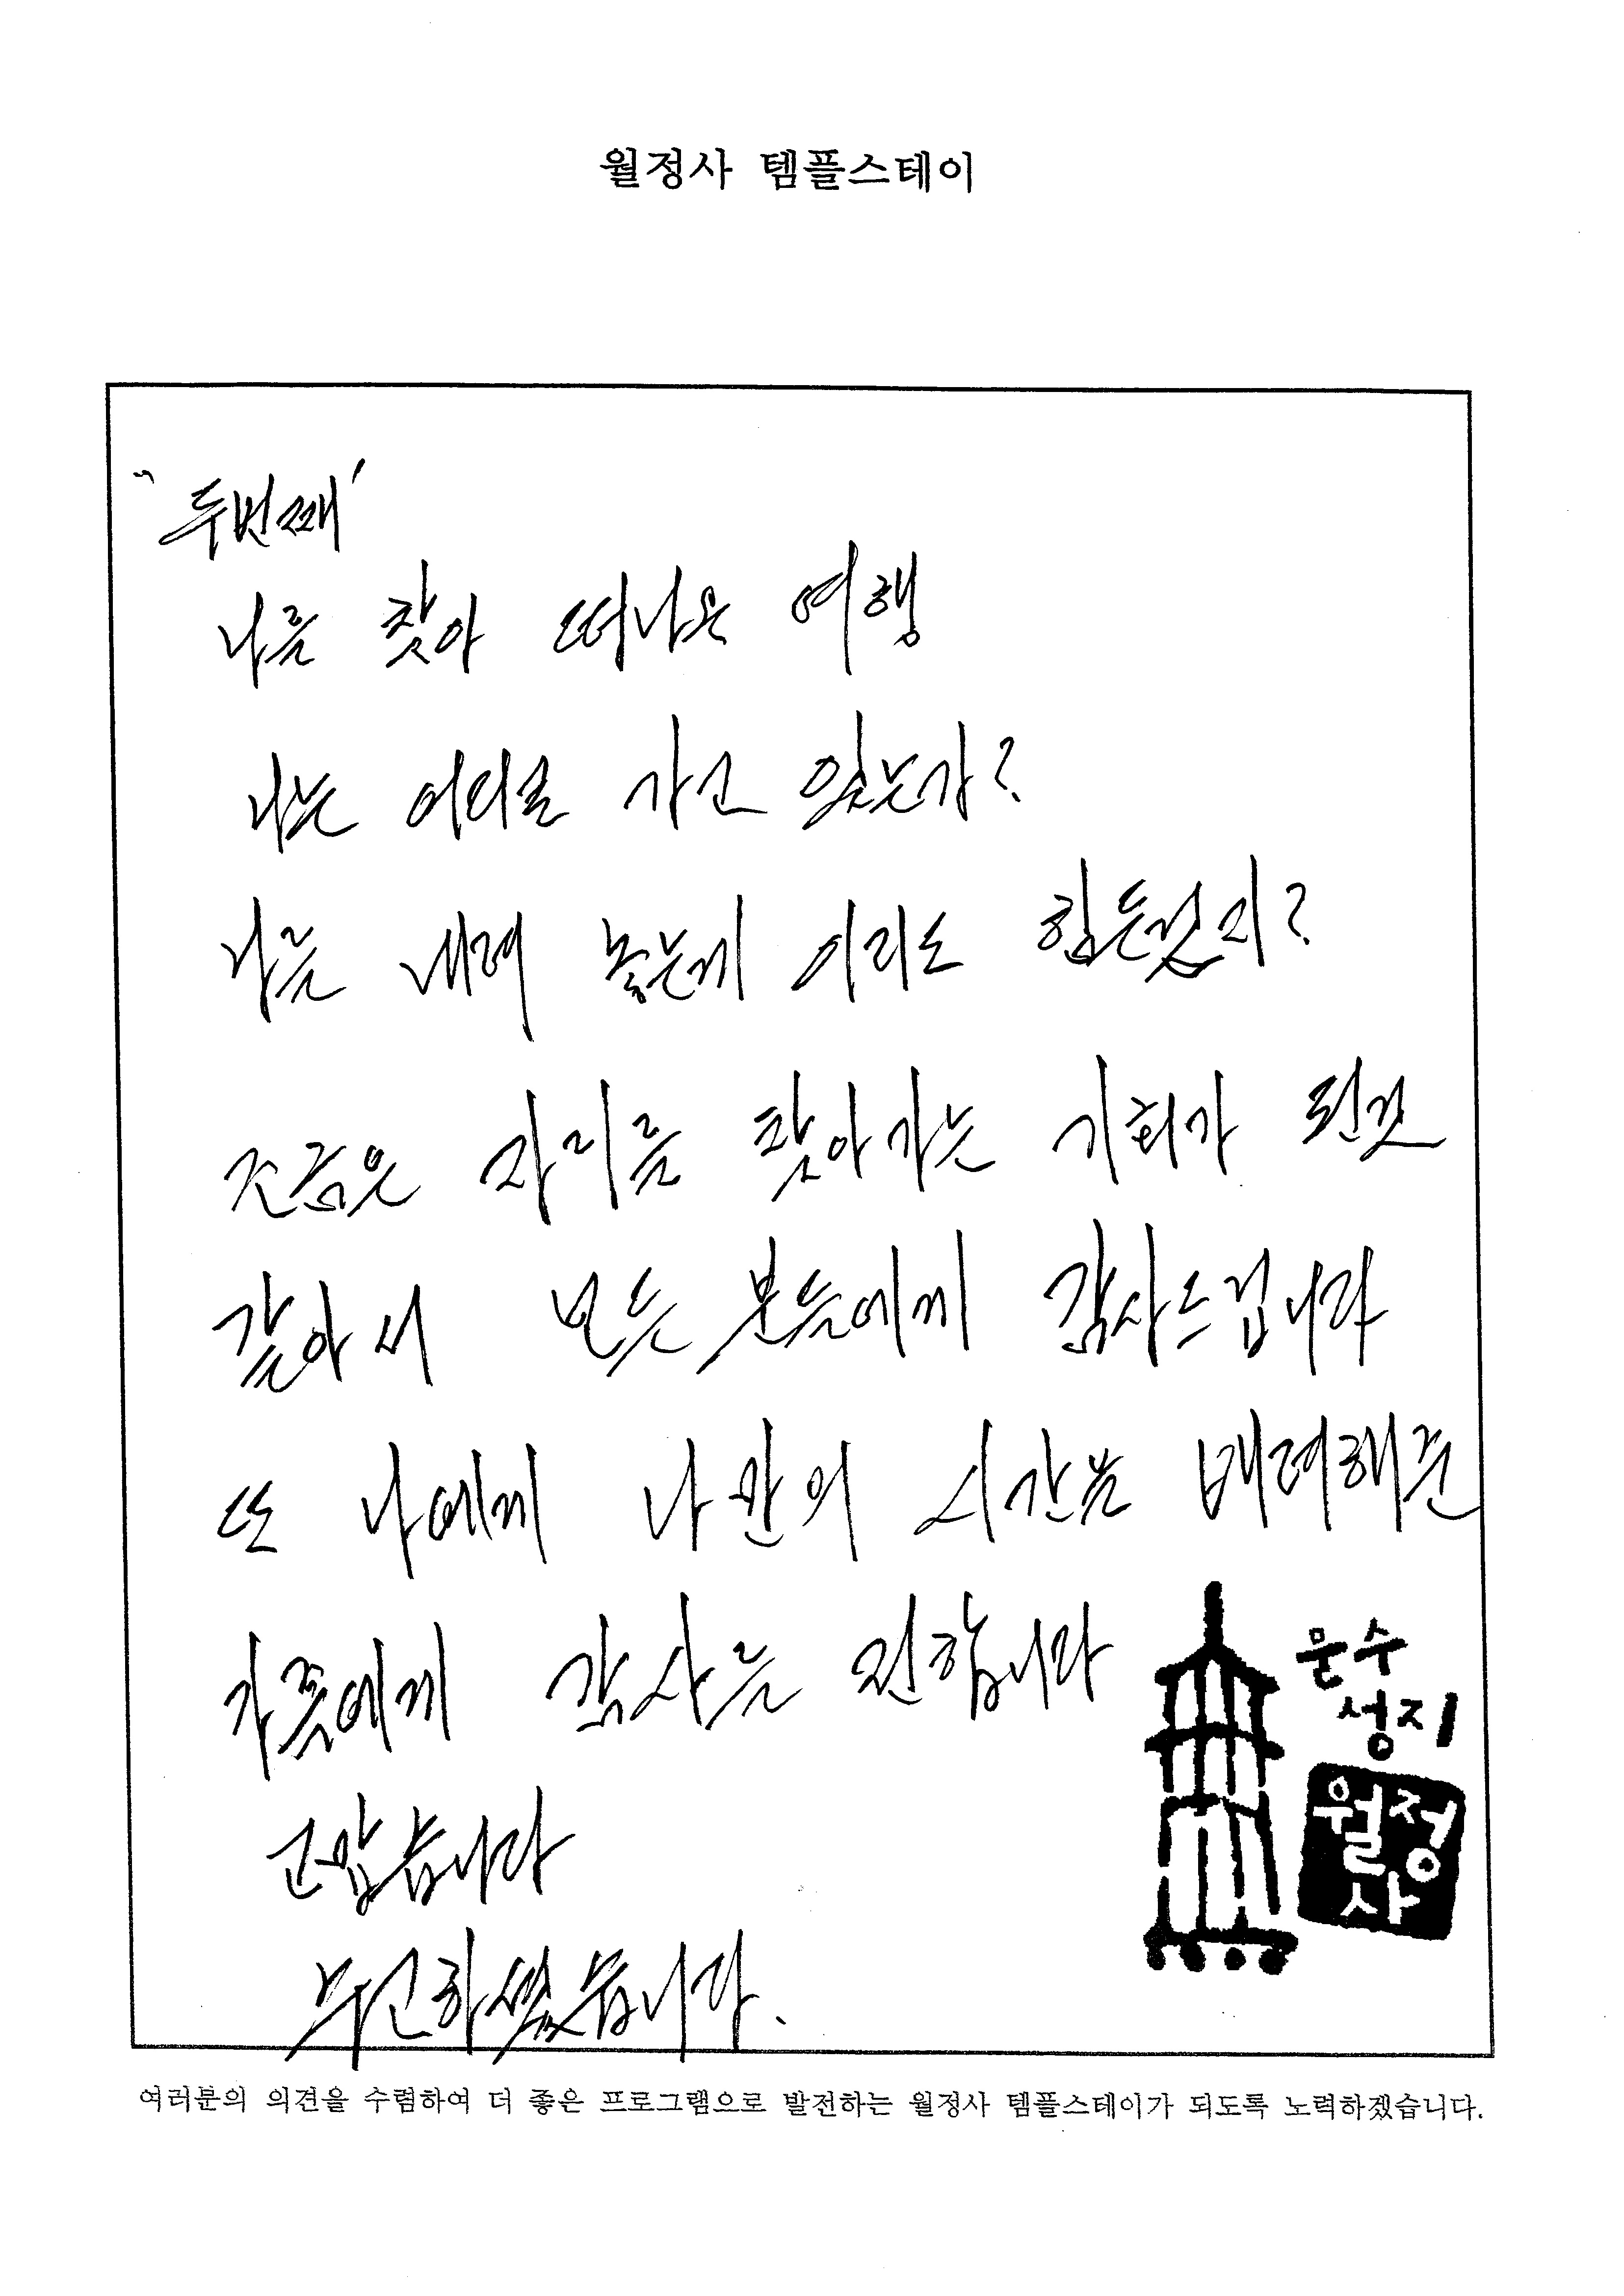 월정사 템플스테이
"두번째'
나를 찾아 떠나온 여행
나는 어디로 가고 있는가?
나를 내려 놓는게 이리도 힘든것인지?
조금은 자리를 찾아가는 기회가 된것
같아서 모든 분들에게 감사드립니다
또 나에게 나만의 시간을 배려해준
가족에게 감사를 전합니다
고맙습니다
수고하셨습니다.
문수
성지
월정
사
여러분의 의견을 수렴하여 더 좋은 프로그램으로 발전하는 월정사 템플스테이가 되도록 노력하겠습니다.